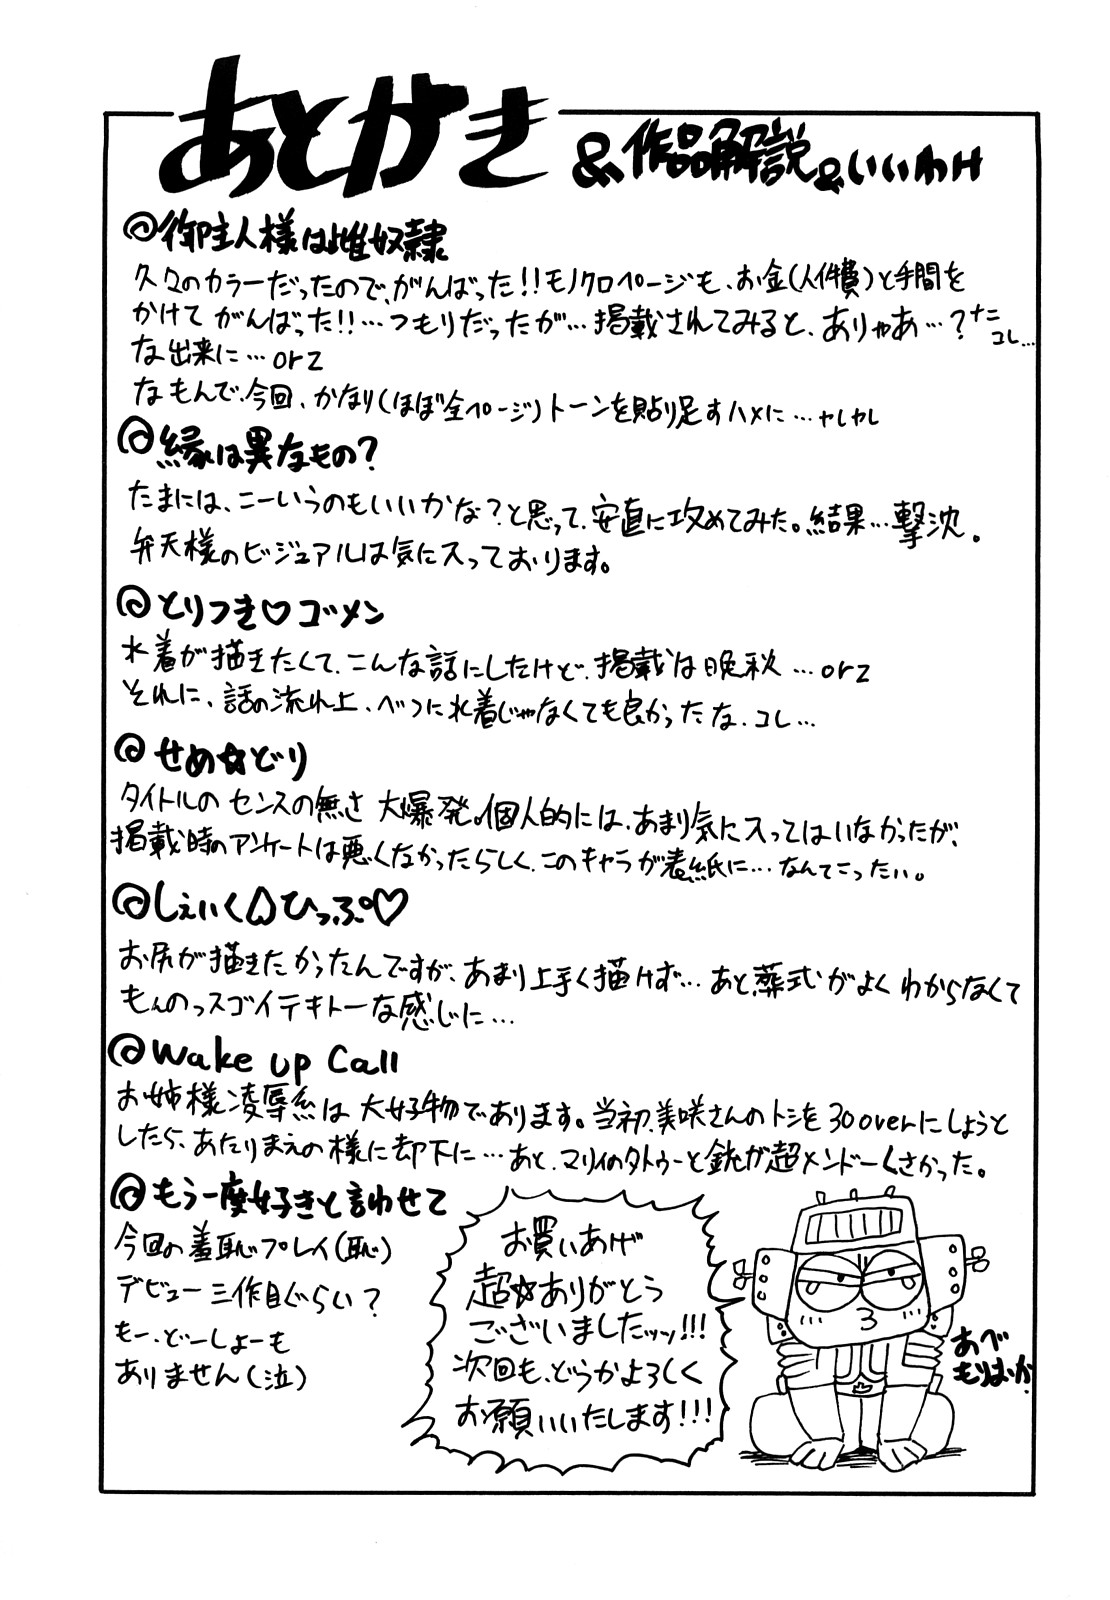 あとがき
&作品解説&いいわけ
@御主人様は雌奴隷
久々のカラーだったので、がんばった!!モノクロページも、お金(人件費)と手間を
かけてがんばった!!…つもりだったが…掲載されてみると、ありゃあ…?ナニコレ…
な出来に…orz
なもんで、今回、かなり(ほぼ全ページ)トーンを貼り足すハメに…ヤレヤレ
@縁は異なもの?
たまには、こーいうのもいいかな?と思って、安直に攻めてみた。結果…撃沈。
弁天様のビジュアルは気に入っております。
@とりつき♡ゴメン
水着が描きたくて、こんな話にしたけど、掲載は晩秋…orz
それに、話の流れ上、べつに水着じゃなくても良かったな、コレ…
@せめ☆どり
タイトルのセンスの無さ大爆発。個人的には、あまり気に入ってはいなかったが、
掲載時のアンケートは悪くなかったらしく、このキャラが表紙に…なんてこったい。
@しぇいく♤ひっぷ♡
お尻が描きたかったんですが、あまり上手く描けず…あと、葬式がよくわからなくて
もんのっスゴイテキトーな感じに…
@Wake up Call
お姉様凌辱系は大好物であります。当初、美咲さんのトシを30overにしようと
したら、あたりまえの様に却下に…あと、マリィのタトゥーと銃が超メンドーくさかった。
@もう一度好きと言わせて
今回の羞恥プレイ(恥)
デビュー三作目ぐらい?
もー、どーしょーも
ありません(泣)
お買いあげ
超☆ありがとう
ございましたッッ!!!
次回も、どうかよろしく
お願いいたします!!!
あべ
もりおか